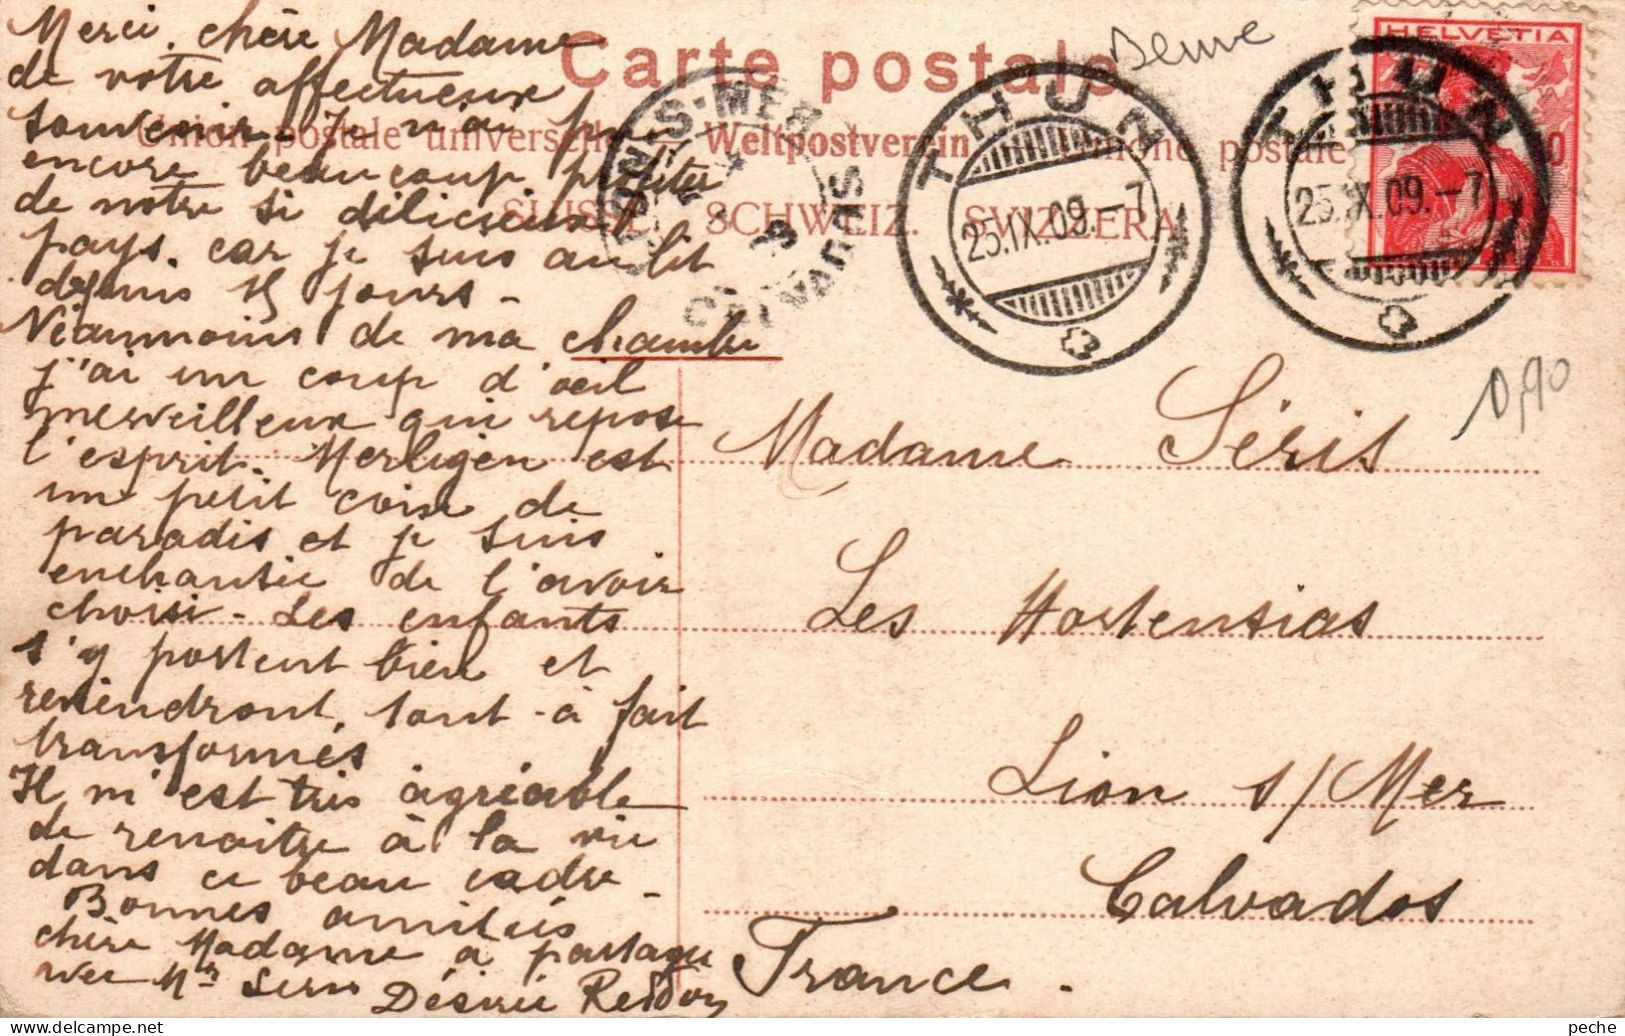 Carte postale.
Union postale universelle. Weltpostverein. Unione postale
SUISSE. SCHWEIZ. SVIZZERA.
HELVETIA
10
THUN
25.IX.09.-7
THUN
25.IX.09.-7
S-MER
CALVADOS
Berne
0,90
Merci, chère Madame
de votre affectueux
souvenir. Je n'ai pu
encore beaucoup profiter
de notre si délicieux
pays, car je suis au lit
depuis 15 jours -
Néanmoins de ma chambre
j'ai un coup d'oeil
merveilleux qui repose
l'esprit. Merligen est
un petit coin de
paradis et je suis
enchantée de l'avoir
choisi - Les enfants
s'y portent bien et
reviendront, tout-à fait
transformés
Il m'est très agréable
de renaître à la vie
dans ce beau cadre -
Bonnes amitiés
chère Madame à partager
avec Mr Seris Désirée
Madame Séris
Les Hortensias
Lion s/Mer
Calvados
France.
peche